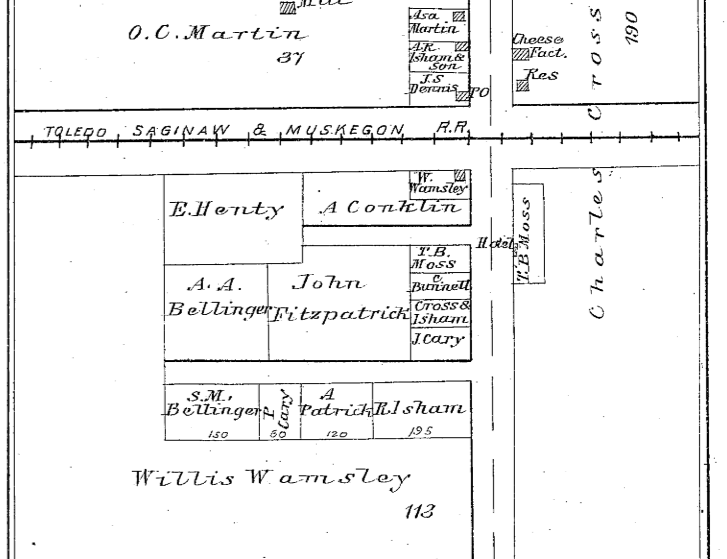 Mill
O.C. Martin
37
Asa
Martin
A.R.
Isham &
Son
J.S
Dennis
PO
Cheese
Fact.
Res
Charles Cross
190
TOLEDO SAGINAW & MUSKEGON R.R.
E. Henty
A Conklin
W.
Wamsley
Hotel
T.B Moss
A. A.
Bellinger
John
Fitzpatrick
T.B.
Moss
C.
Bunnell
Cross &
Isham
J. Cary
S.M.
Bellinger
150
P Cary
60
A
Patrick
120
R Isham
195
Willis Wamsley
113